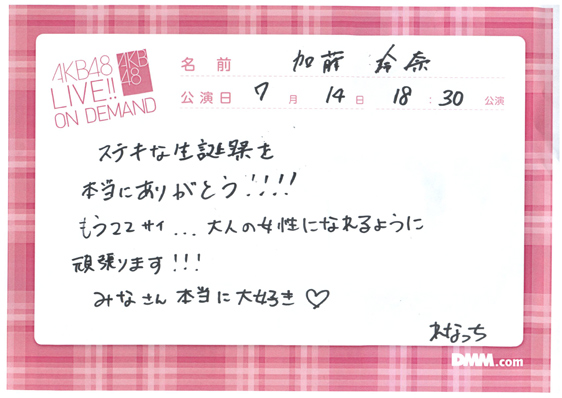 AKB48
LIVE!!
ON DEMAND
AKB
48
名前 加藤 玲奈
公演日 7月 14日 18:30 公演
ステキな生誕祭を
本当にありがとう!!!!
もう22サイ...大人の女性になれるように
頑張ります!!!
みなさん本当に大好き♡
れなっち
DMM.com